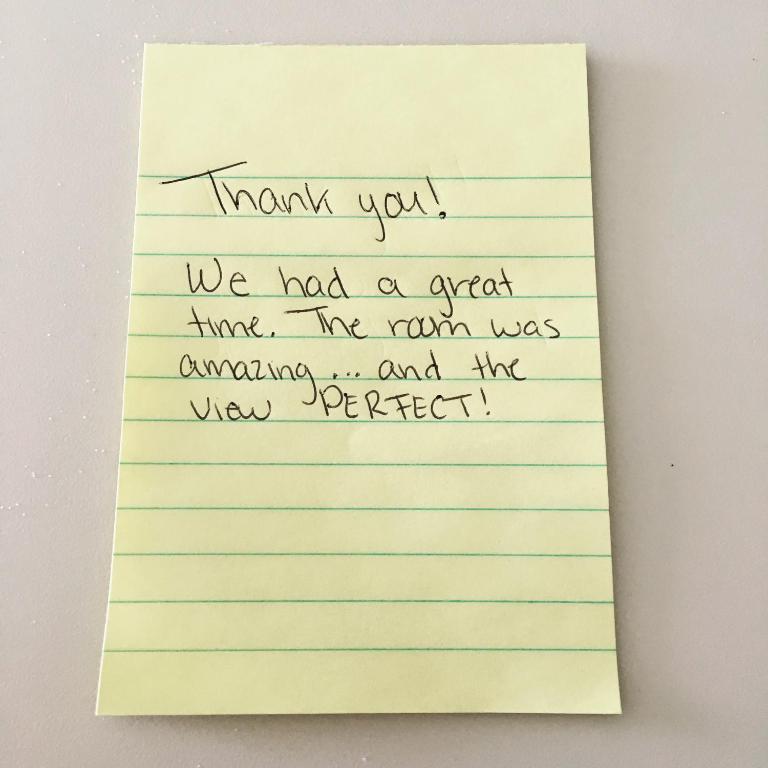 Thank you!
We had a great
time. The room was
amazing... and the
view PERFECT!